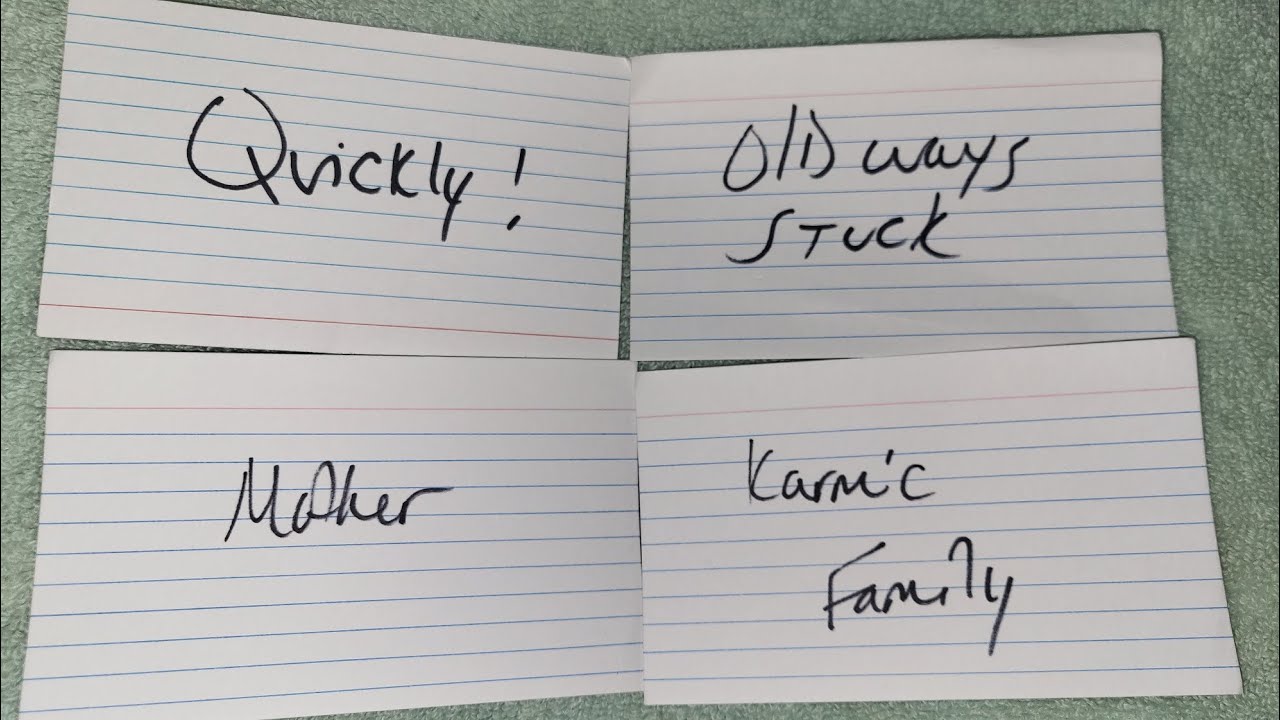 Quickly!
Old ways
Stuck
Mother
Karmic
Family